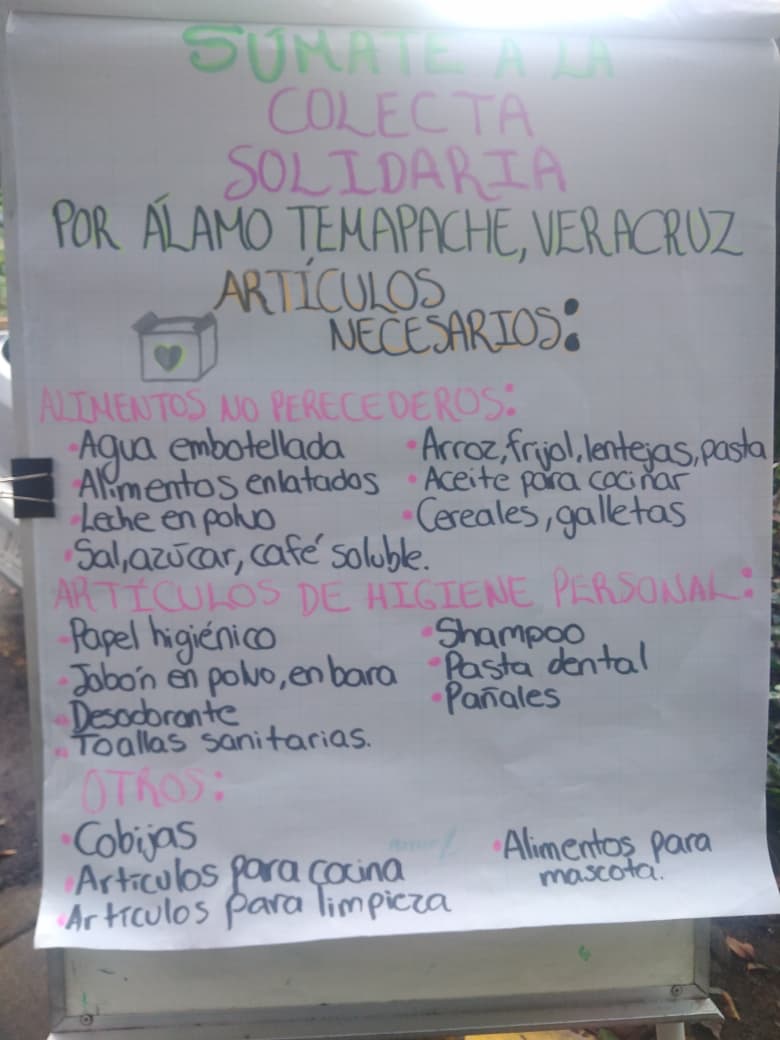 SÚMATE A LA
COLECTA
SOLIDARIA
POR ÁLAMO TEMAPACHE, VERACRUZ
ARTÍCULOS
NECESARIOS:
ALIMENTOS NO PERECEDEROS:
• Agua embotellada
• Alimentos enlatados
• Leche en polvo
• Sal, azúcar, café soluble.
• Arroz, frijol, lentejas, pasta
• Aceite para cocinar
• Cereales, galletas
ARTÍCULOS DE HIGIENE PERSONAL:
• Papel higiénico
• Jabón en polvo, en bara
• Desodorante
• Toallas sanitarias.
• Shampoo
• Pasta dental
• Pañales
OTROS:
• Cobijas
• Artículos para cocina
• Artículos para limpieza
• Alimentos para
mascota.